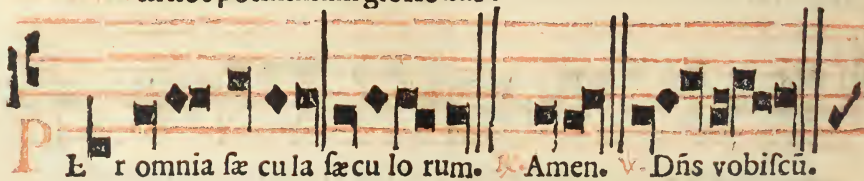 PE r omnia ſæ cu la ſæcu lo rum. ℟. Amen. ℣. Dñs vobiſcū.